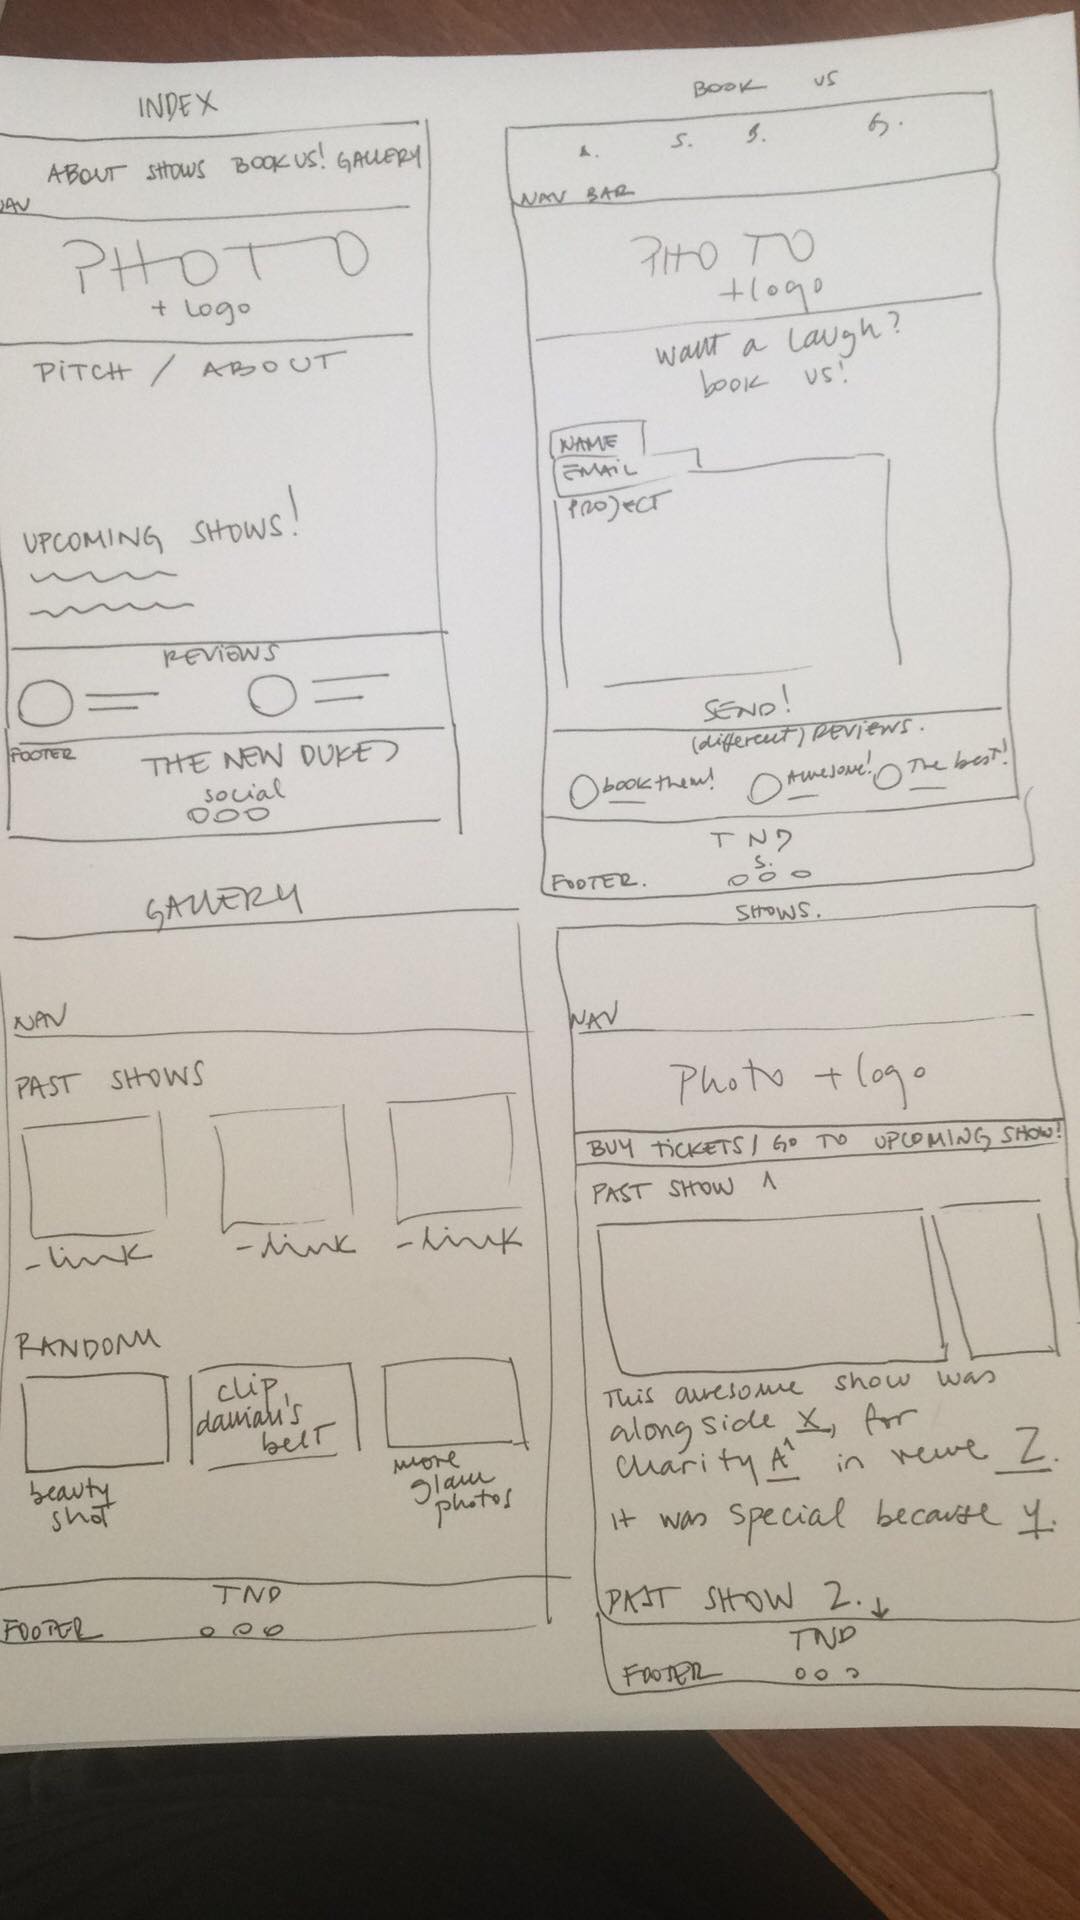 INDEX
ABOUT SHOWS BOOK US! GALLERY
NAV
PHOTO
+ logo
PITCH / ABOUT
UPCOMING SHOWS!
REVIEWS
FOOTER
THE NEW DUKES
social
BOOK US
A. S. B. G.
NAV BAR
PHOTO
+ logo
want a laugh?
book us!
NAME
EMAIL
PROJECT
SEND!
(different) REVIEWS.
book them! Awesome! The best!
TND
S.
FOOTER.
GALLERY
NAV
PAST SHOWS
- link - link - link
RANDOM
clip
damian's
belt
beauty
shot
more
glam
photos
TND
FOOTER
SHOWS.
NAV
Photo + logo
BUY TICKETS / GO TO UPCOMING SHOW!
PAST SHOW 1
This awesome show was
alongside X, for
charity A in venue Z.
it was special because y.
PAST SHOW 2. ↓
TND
FOOTER